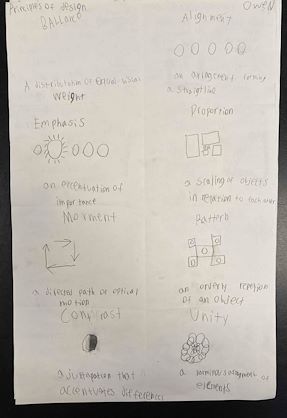 Principles of design
Owen
BALLANCE
Alignment
A distribution of equal visual
weight
an arrangement forming
a straight line
Emphasis
Proportion
an accentuation of
importance
a scaling of objects
in relation to each other
Movment
Pattern
a directed path or optical
motion
an orderly repetion
of an object
Contrast
Unity
a juxtaposition that
accentuates differences
a harmonius arrangment of
elements